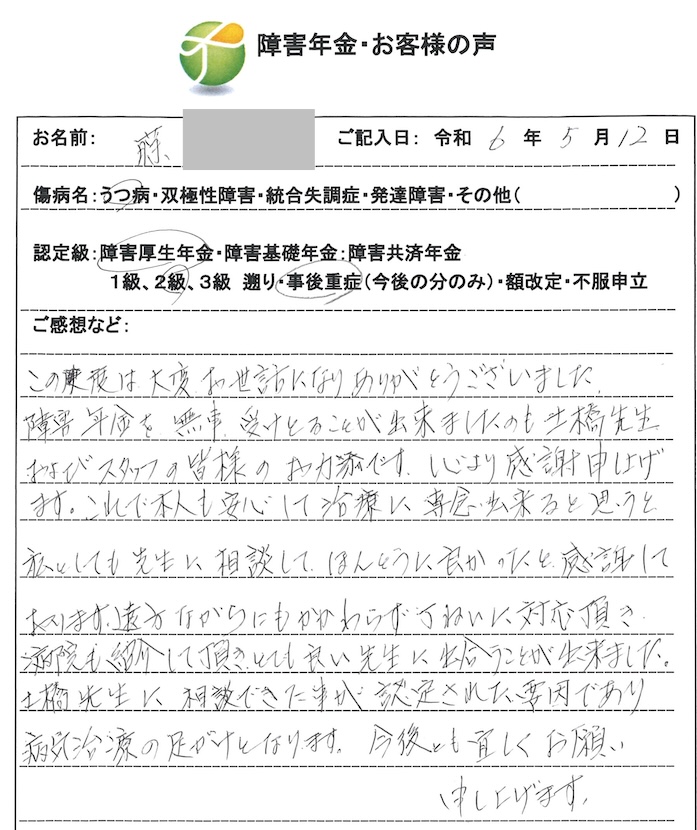 障害年金・お客様の声
お名前: 藤 ご記入日: 令和 6 年 5 月 12 日
傷病名:うつ病・双極性障害・統合失調症・発達障害・その他( )
認定級:障害厚生年金・障害基礎年金:障害共済年金
1級、2級、3級 遡り・事後重症(今後の分のみ)・額改定・不服申立
ご感想など:
この度は大変お世話になりありがとうございました
障害年金を無事受けとることが出来ましたのも土橋先生
およびスタッフの皆様のお力添です。心より感謝申上げ
ます。これで本人も安心して治療に専念出来ると思うと
私としても先生に相談して、ほんとうに良かったと感謝して
おります。遠方ながらにもかかわらずていねいに対応頂き
病院も紹介して頂きとても良い先生に出合うことが出来ました。
土橋先生に相談できた事が認定された要因であり
病気治療の足がけとなります。今後とも宜しくお願い
申し上げます。